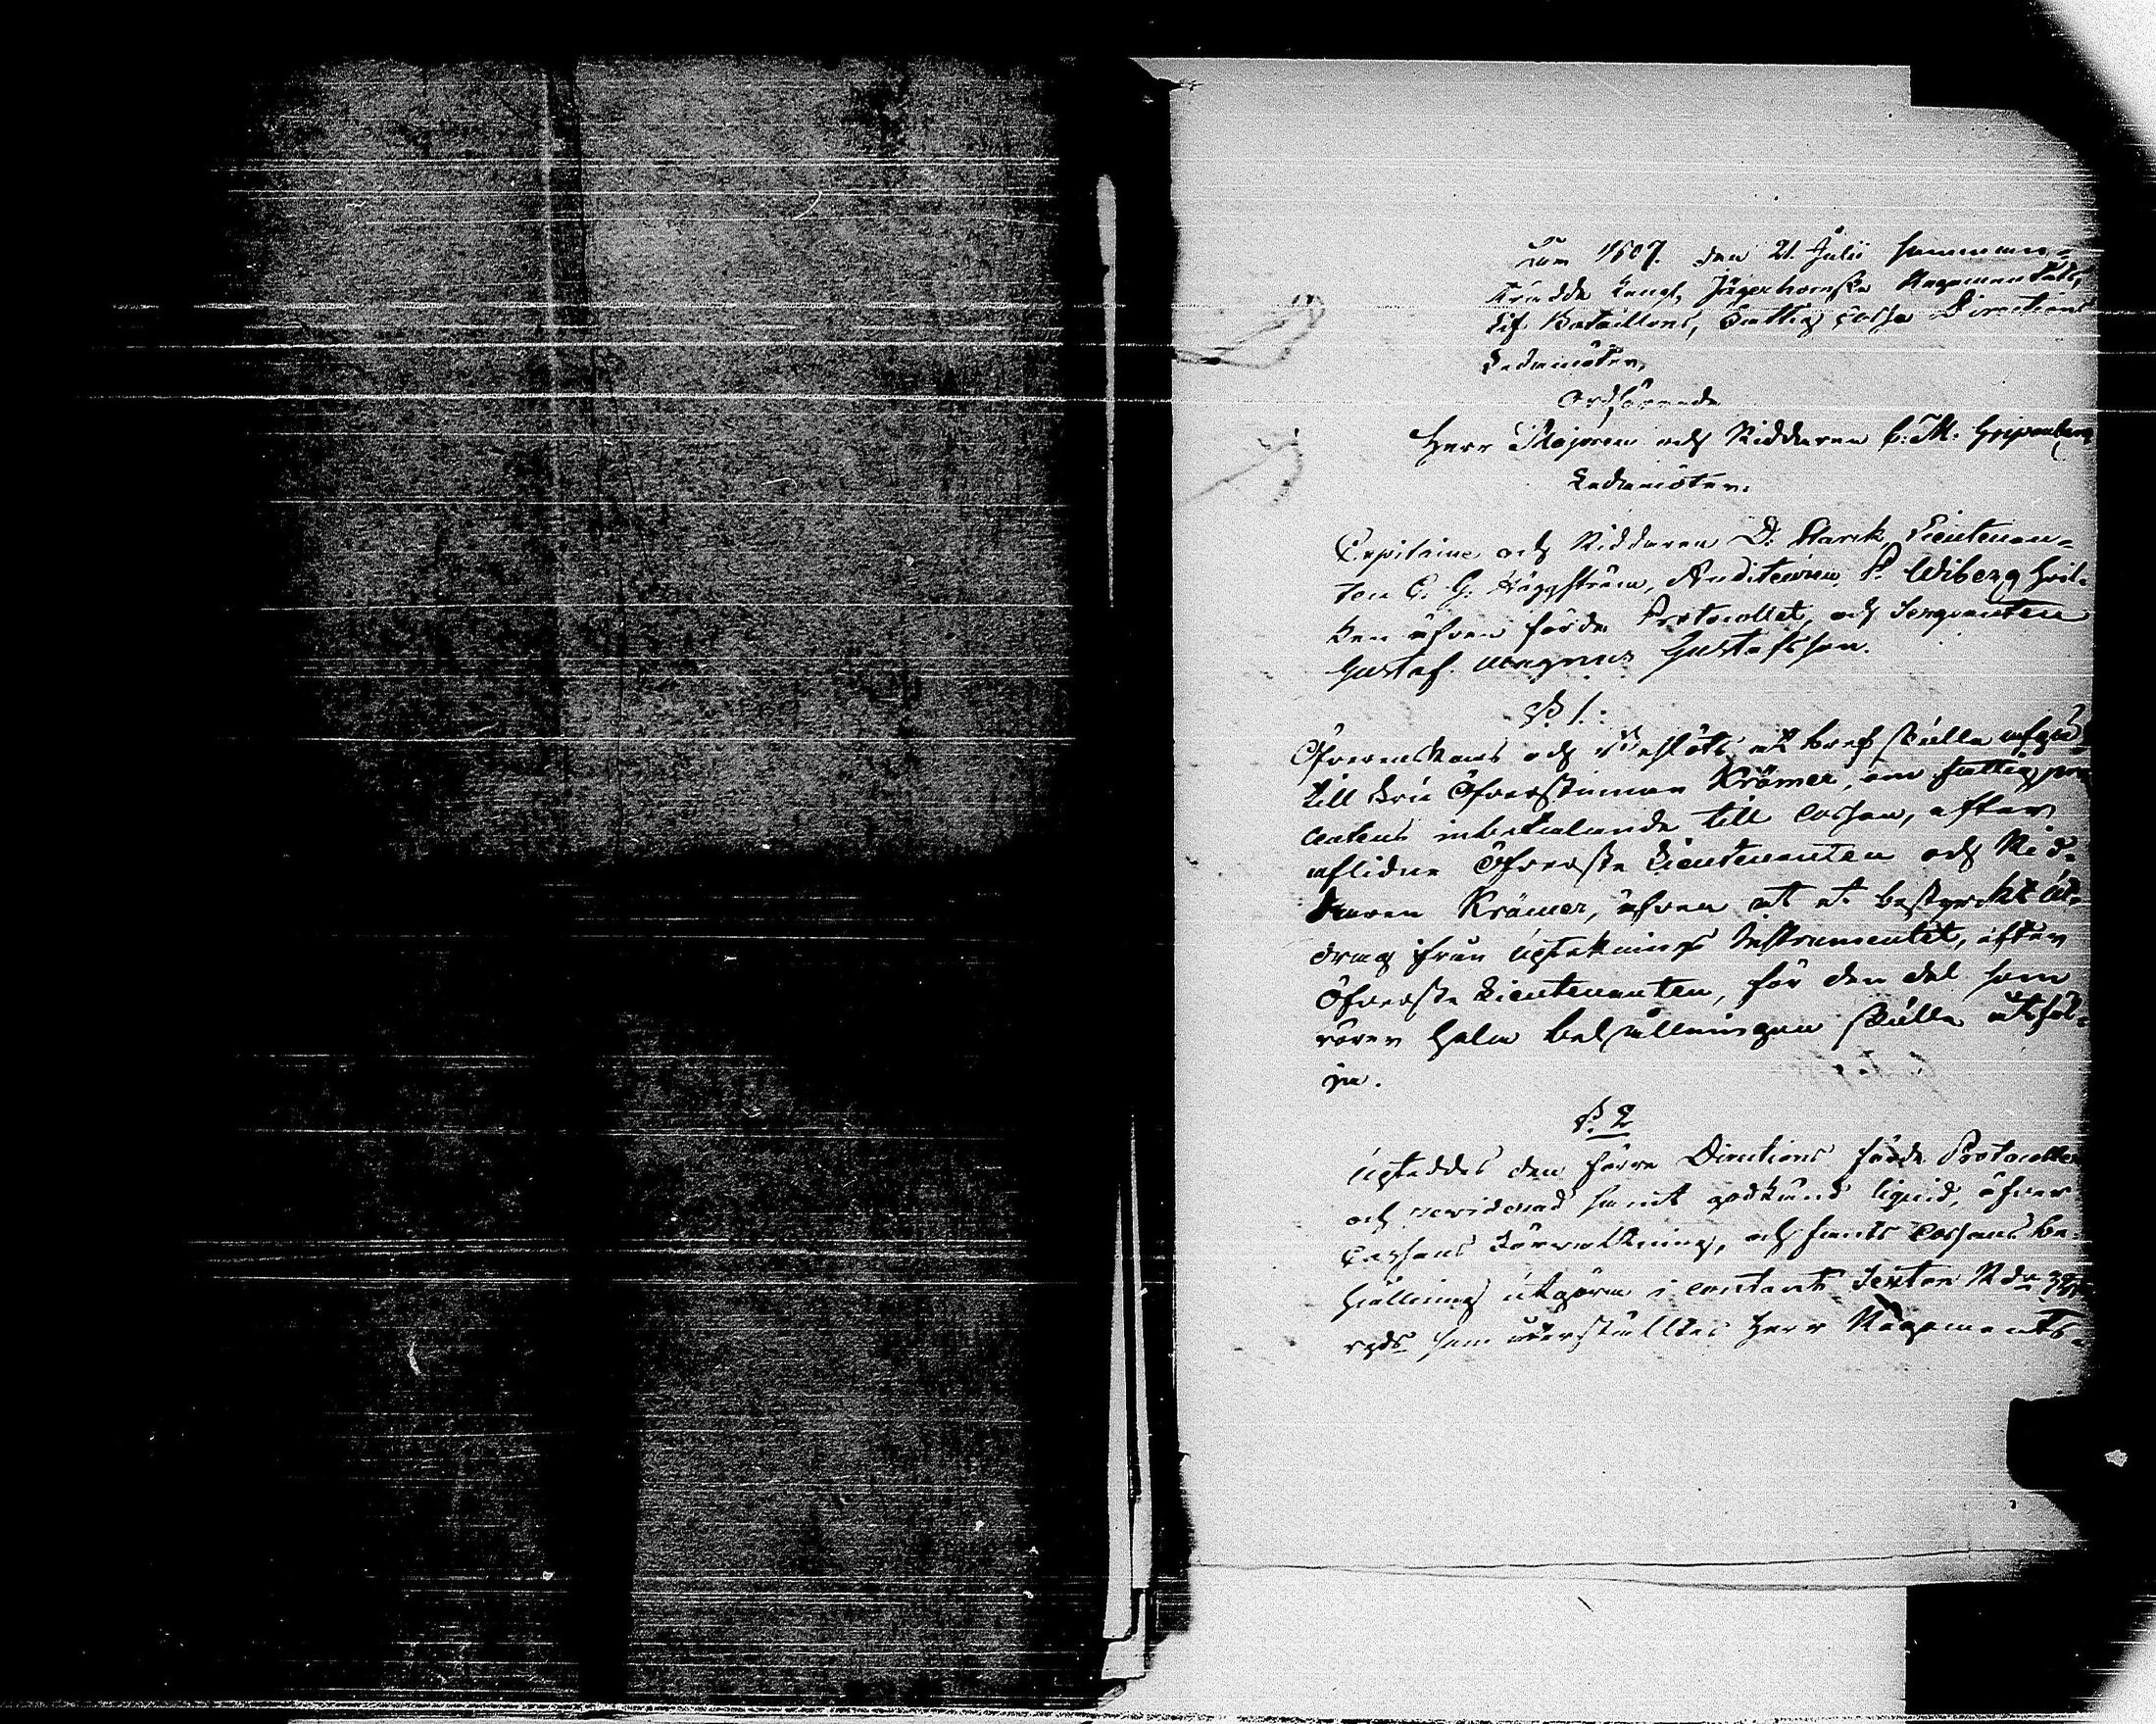 1807. den 21 Julii samman-
trädde Kongl. Jägerhornska Regementets,
Lif Bataillons, Fattig Cassa Directions
Ledamöter,
Ordförande
Herr Majoren och Riddaren C: M: Gripenberg
Ledamöter.
Capitaine och Riddaren D: Starck, Lieutenan-
ten C. G. Häggström, Auditeuren P. Wiberg hvil-
ken äfven förde Protocollet, och Sergeanten
Gustaf Magnus Gustafsson.
§. 1.
Öfverenskoms och beslöts at bref skulle afgå
till Fru Öfverstinnan Krämer, om fattig pro
centens inbetalande till Cassan, efter
aflidne Öfverste Lieutenanten och Rid-
daren Krämer, äfven at et bestyrckt ut-
drag ifrån upteknings Instrumentet, efter
Öfverste Lieutenanten, för den del som
rörer hela behållningen skulle utföl-
ja.
§. 2
Upteddes den förre Directions förde Protocoller
och reviderad samt godkänd liquid, öfver
Cassans Förvaltning, och fants Cassans be-
hållning utgöra i contant Sexton Rdr
rgds som öfverstälttes Herr Regements-